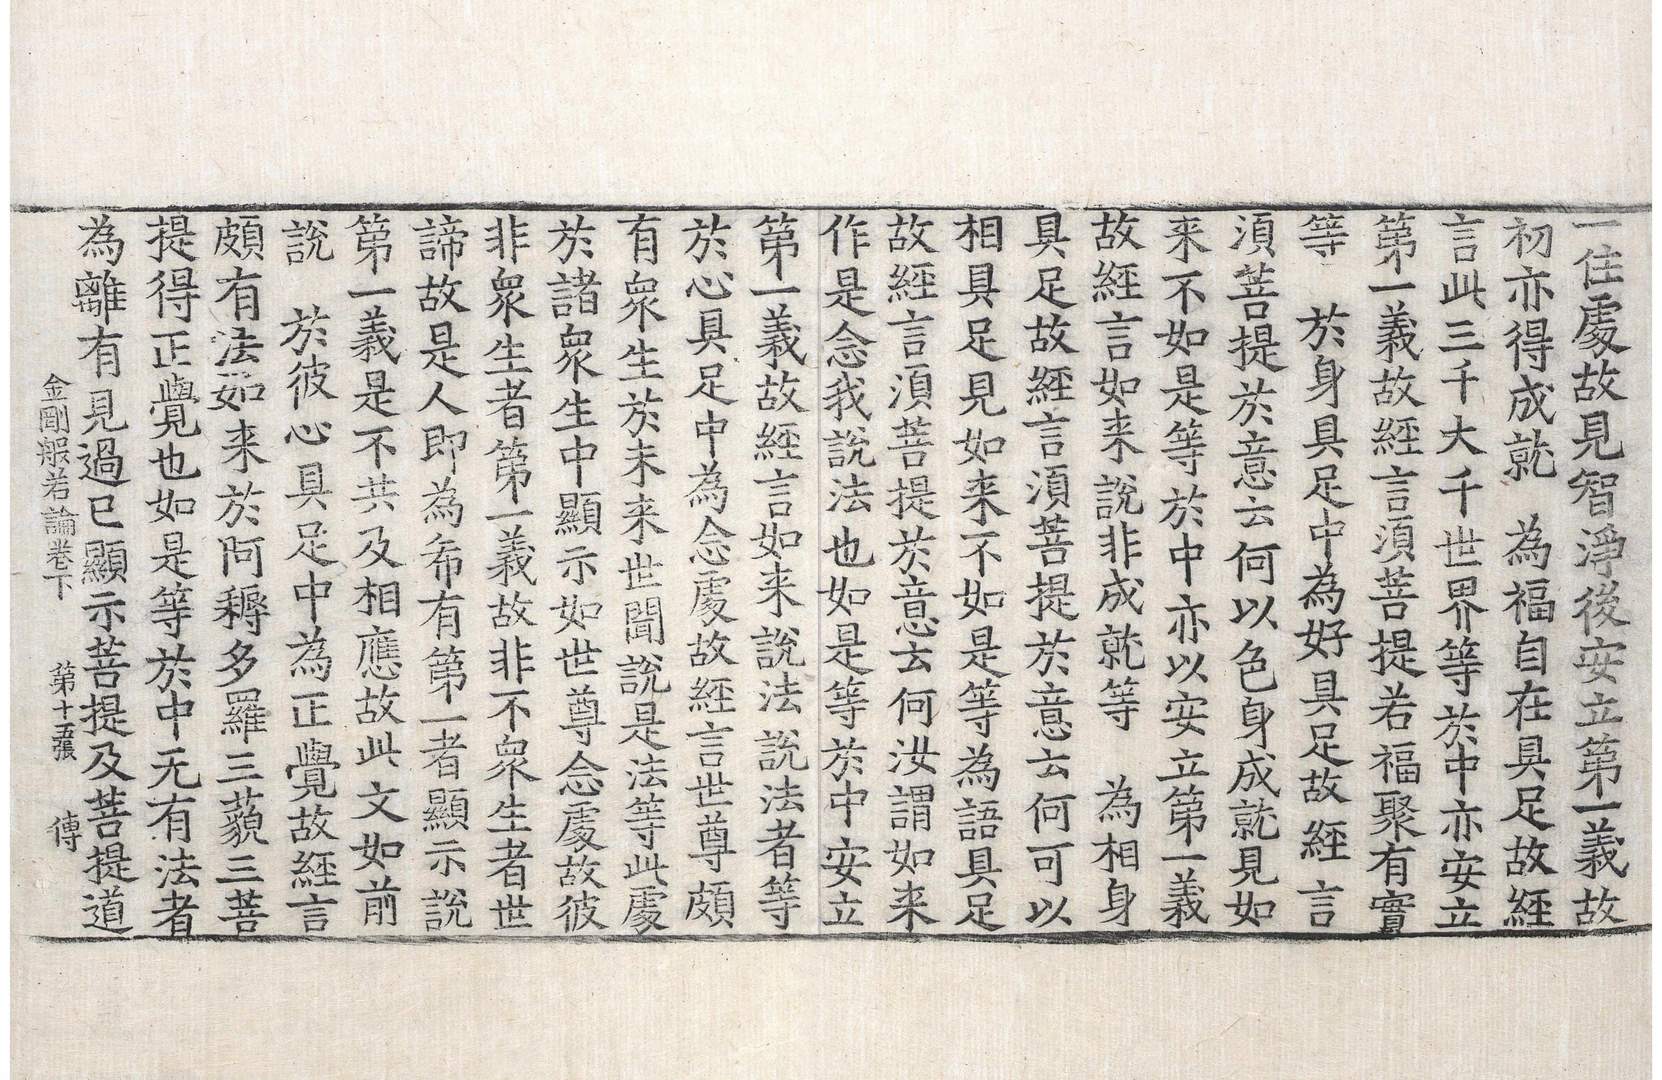 一住處故見智淨後安立第一義故
初亦得成就　為福自在具足故經
言此三千大千世界等於中亦安立
第一義故經言須菩提若福聚有實
等　於身具足中為好具足故經言
須菩提於意云何以色身成就見如
来不如是等於中亦以安立第一義
故經言如来說非成就等　為相身
具足故經言須菩提於意云何可以
相具足見如来不如是等為語具足
故經言須菩提於意云何汝謂如来
作是念我說法也如是等於中安立
第一義故經言如来說法說法者等
於心具足中為念處故經言世尊頗
有衆生於未来世聞說是法等此處
於諸衆生中顯示如世尊念處故彼
非衆生者第一義故非不衆生者世
諦故是人即為希有第一者顯示說
第一義是不共及相應故此文如前
說　於彼心具足中為正覺故經言
頗有法如来於阿耨多羅三藐三菩
提得正覺也如是等於中无有法者
為離有見過已顯示菩提及菩提道
金剛般若論卷下　第十五張　傅